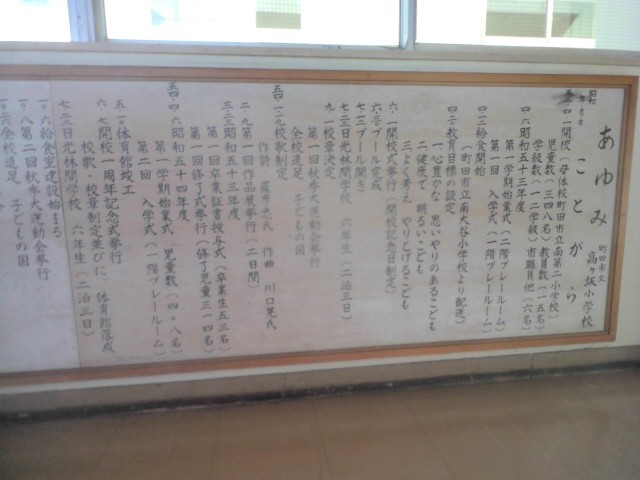 町田市立
高ヶ坂小学校
あゆみ
ことがら
昭和
年・月・日
五三・四・一開校(母体校町田市立南第二小学校)
児童数(三四八名)教員数(一五名)
学級数(一二学級)市職員他(六名)
四・六昭和五十三年度
第一学期始業式(二階プレールーム)
第一回 入学式(一階プレールーム)
四・二給食開始
(町田市立南大谷小学校より配送)
四・三教育目標の設定
一心豊かな 思いやりのあるこども
二健康で 明るいこども
三よく考え やりとげるこども
六・一開校式挙行(開校記念日制定)
六・三プール完成
七・三プール開き
七・三五日光林間学校 六年生(二泊三日)
九・一校章決定
第一回秋季大運動会挙行
全校遠足 子どもの国
五四・一・二九校歌制定
作曲 川口晃氏
二・九第一回作品展挙行(二日間)
三・三昭和五十三年度
第一回卒業証書授与式(卒業生五三名)
第一回修了式挙行(修了児童三一四名)
五四・四・六昭和五十四年度
第一学期始業式 児童数(四〇八名)
第二回 入学式(一階プレールーム)
五・一体育館竣工
六・七開校一周年記念式挙行
校歌・校章制定並びに、体育館落成
七・三日光林間学校 六年生(二泊三日)
一〇・六給食室建設始まる
一〇・八第二回秋季大運動会挙行
全校遠足 子どもの国